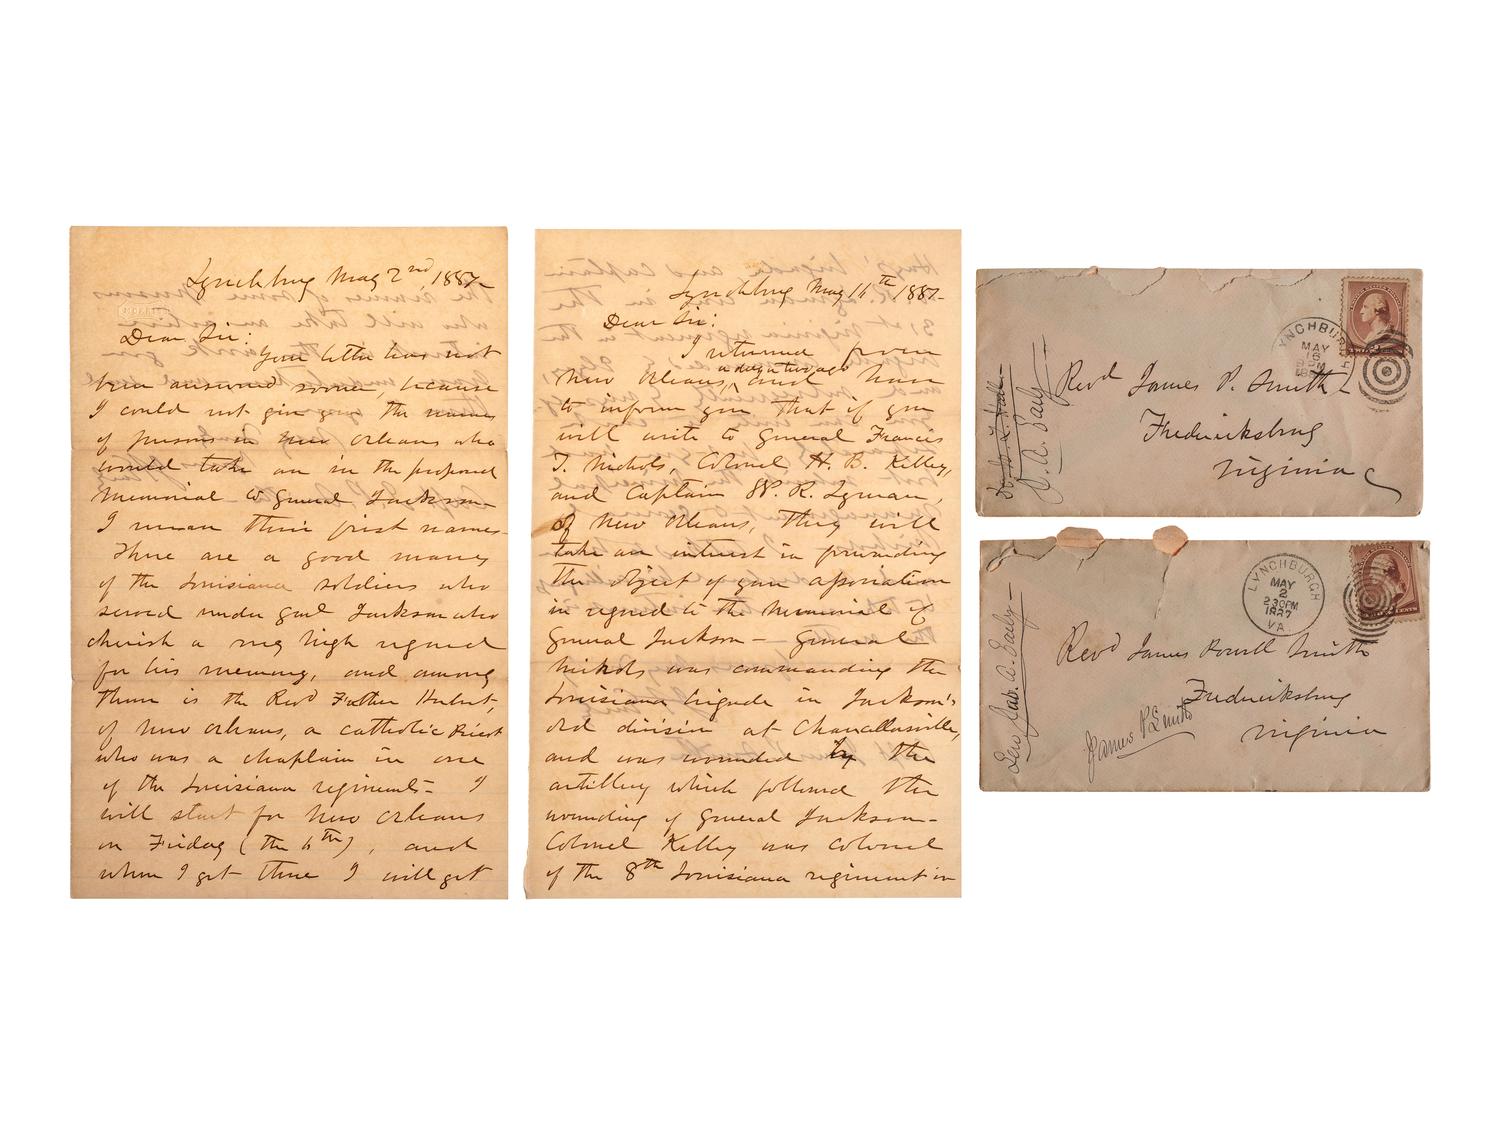 Lynchburg May 2nd, 1887-
Dear Sir:
Your letter has not
been answered sooner because
I could not give you the names
of persons in New Orleans who
would take an in the proposed
Memorial to General Jackson
I mean their first names-
There are a good many
of the Louisiana soldiers who
served under Genl Jackson who
cherish a very high regard
for his memory, and among
them is the Revd Father Hubert,
of New Orleans, a catholic Priest
who was a chaplain in one
of the Louisiana regiments- I
will start for New Orleans
on Friday (the 6th), and
when I get there I will get
Lynchburg May 16th, 1887-
Dear Sir:
I returned from
New Orleans, a day or two ago and have
to inform you that if you
will write to General Francis
T. Nichols, Colonel H. B. Kelley,
and Captain W. R. Lyman,
of New Orleans, they will
take an interest in forwarding
the object of your association
in regard to the Memorial of
General Jackson - General
Nichols was commanding the
Louisiana brigade in Jackson's
old division at Chancellorsville,
and was wounded by the
artillery which followed the
wounding of General Jackson-
Colonel Kelley was colonel
of the 8th Louisiana regiment in
LYNCHBURGH
MAY
16
Revd James P. Smith
Fredericksburg
Virginia
J. A. Early
LYNCHBURGH
MAY
2
2 30PM
1887
VA.
Revd James Powell Smith
Fredericksburg
Virginia
James P Smith
Gen Jab. A. Early